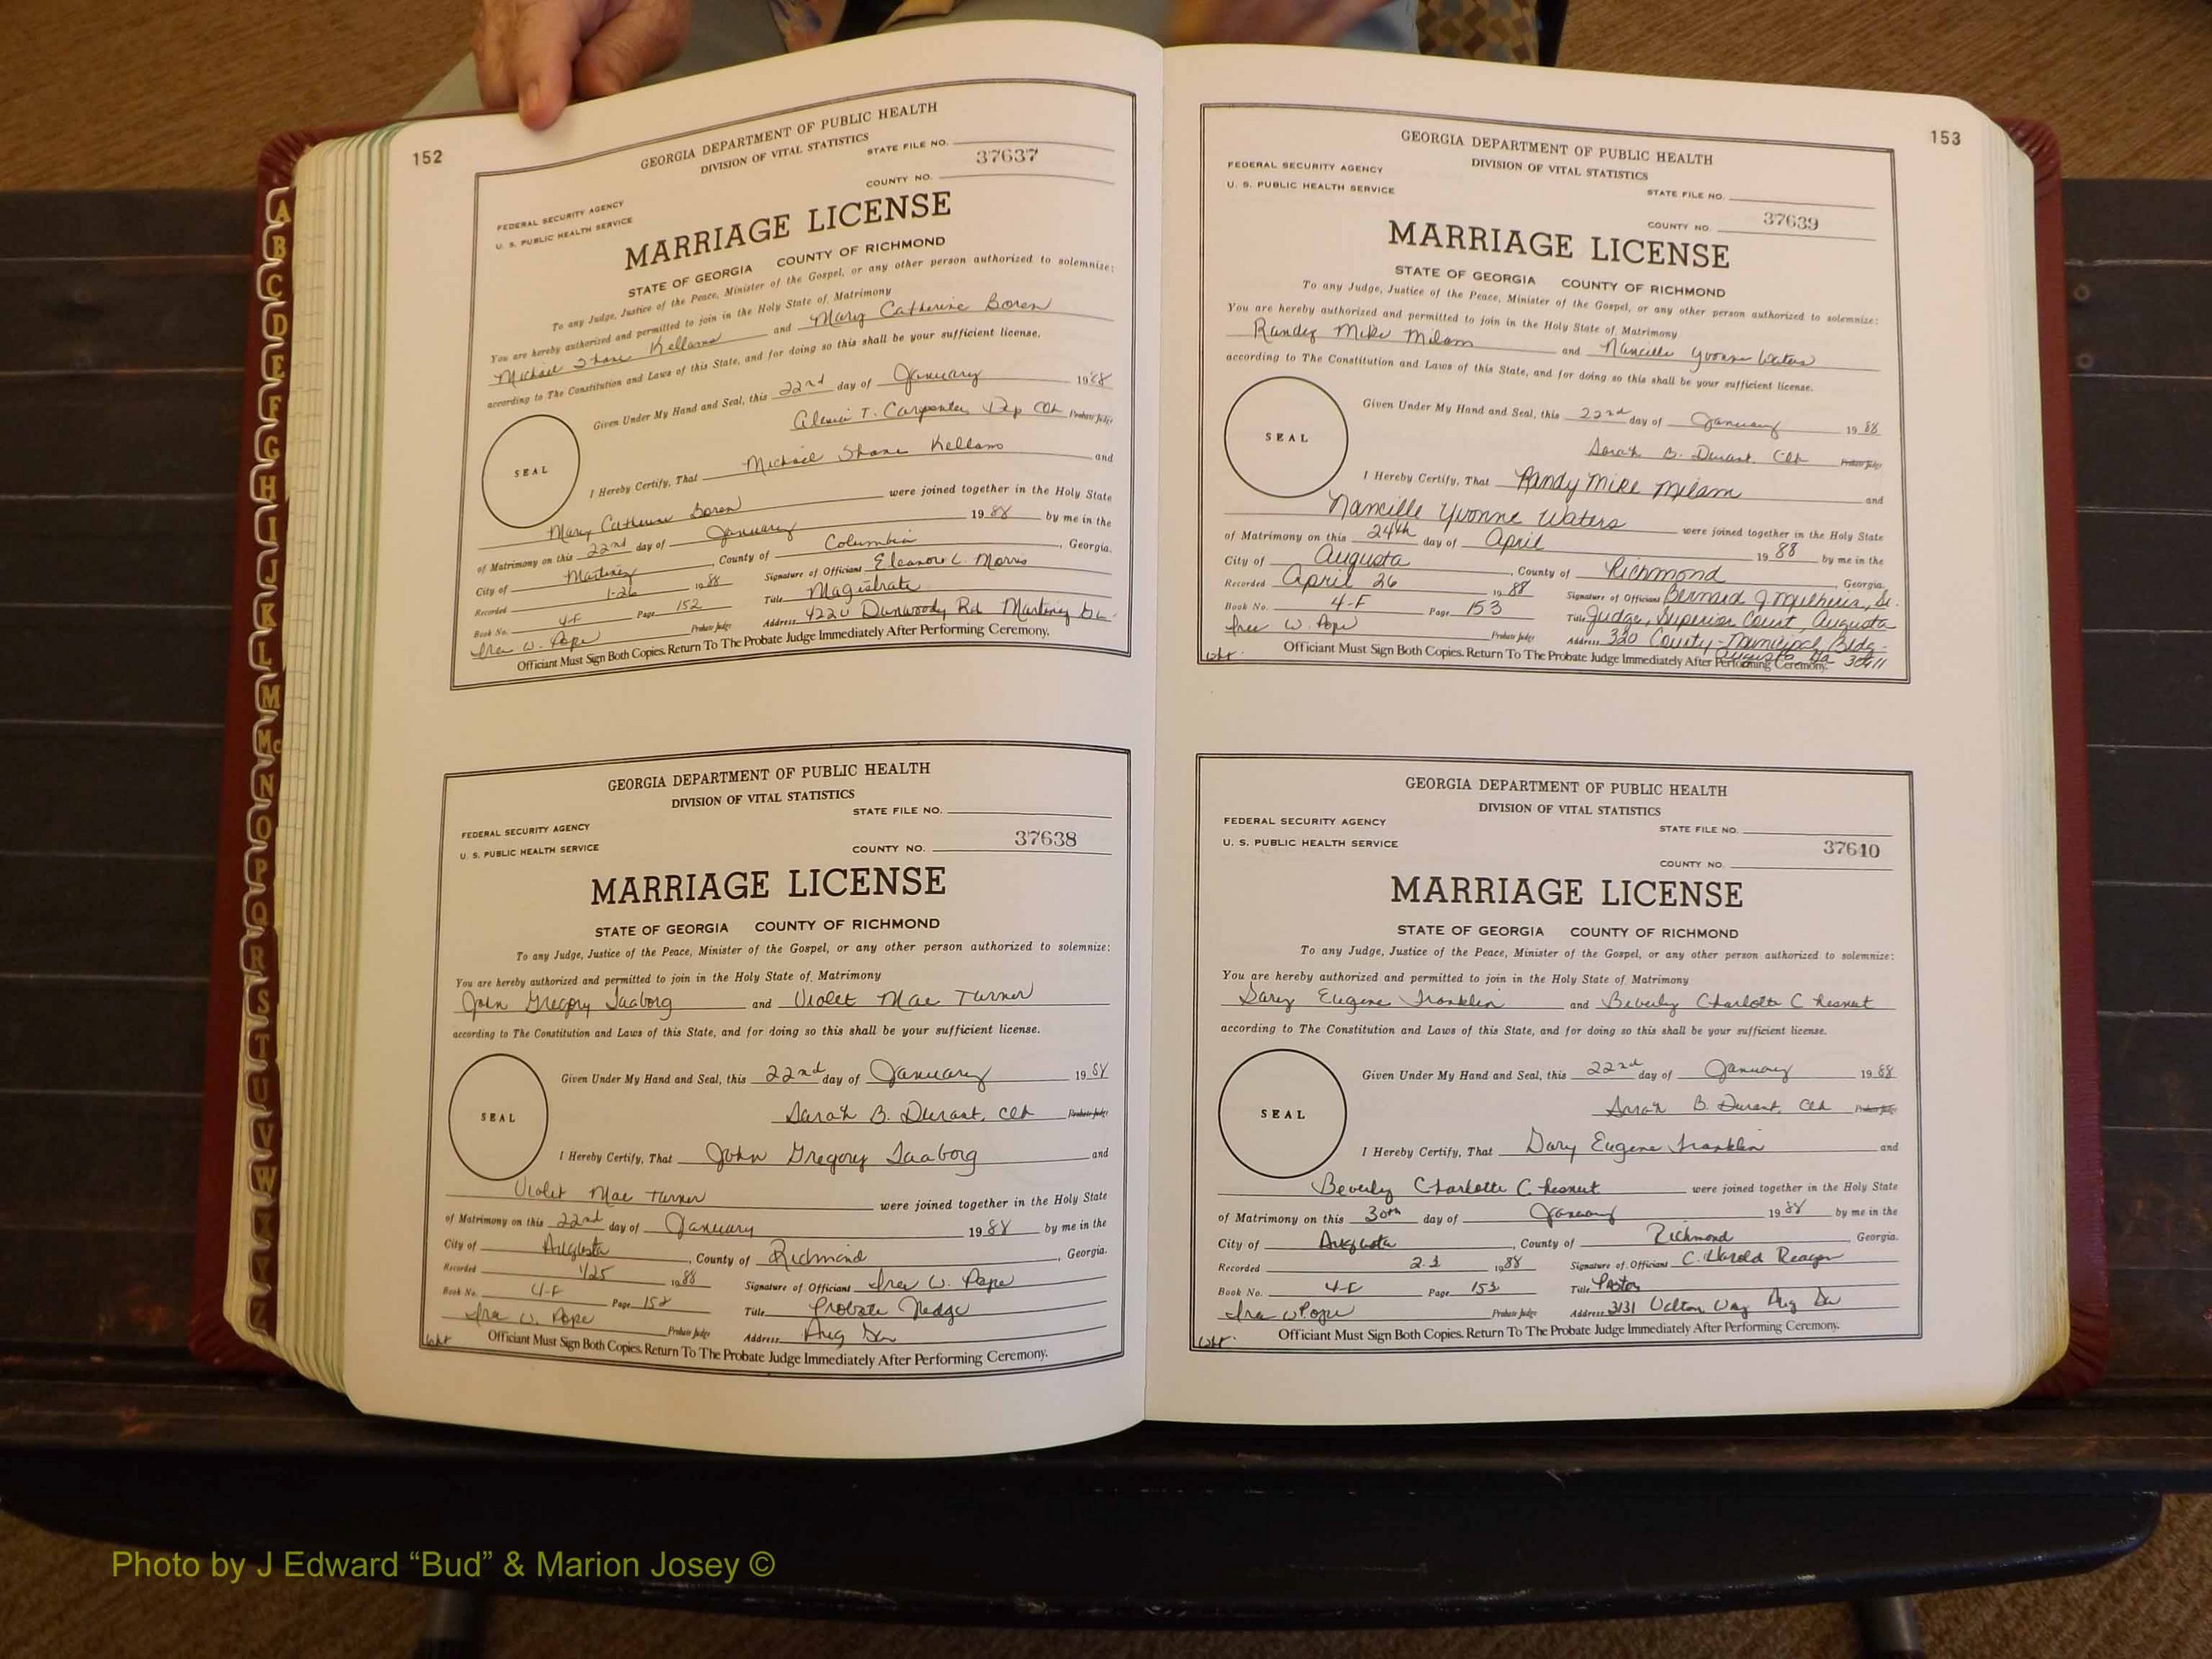 152
GEORGIA DEPARTMENT OF PUBLIC HEALTH
DIVISION OF VITAL STATISTICS
STATE FILE NO. 37637
COUNTY NO.
FEDERAL SECURITY AGENCY
U. S. PUBLIC HEALTH SERVICE
MARRIAGE LICENSE
STATE OF GEORGIA COUNTY OF RICHMOND
To any Judge, Justice of the Peace, Minister of the Gospel, or any other person authorized to solemnize:
You are hereby authorized and permitted to join in the Holy State of Matrimony
Michael Shane Kellams and Mary Catherine Boren
according to The Constitution and Laws of this State, and for doing so this shall be your sufficient license.
Given Under My Hand and Seal, this 22nd day of January 1988
T. Carpenter, Dep Clk Probate Judge
SEAL
I Hereby Certify, That Michael Shane Kellams and
Mary Catherine Boren were joined together in the Holy State
of Matrimony on this 22nd day of January 1988 by me in the
City of Martinez, County of Columbia, Georgia.
Recorded 1-26 1988 Signature of Officiant Eleanor L. Morris
Book No. 4-F Page 152 Title Magistrate
W. Pope Probate Judge Address 4220 Dunwoody Rd Martinez Ga.
Officiant Must Sign Both Copies. Return To The Probate Judge Immediately After Performing Ceremony.
GEORGIA DEPARTMENT OF PUBLIC HEALTH
DIVISION OF VITAL STATISTICS
STATE FILE NO.
FEDERAL SECURITY AGENCY
37638
U. S. PUBLIC HEALTH SERVICE COUNTY NO.
MARRIAGE LICENSE
STATE OF GEORGIA COUNTY OF RICHMOND
To any Judge, Justice of the Peace, Minister of the Gospel, or any other person authorized to solemnize:
You are hereby authorized and permitted to join in the Holy State of Matrimony
John Gregory Taaborg and Violet Mae Turner
according to The Constitution and Laws of this State, and for doing so this shall be your sufficient license.
Given Under My Hand and Seal, this 22nd day of January 1988
Sarah B. Durant, Clk Probate Judge
SEAL
I Hereby Certify, That John Gregory Taaborg and
Violet Mae Turner were joined together in the Holy State
of Matrimony on this 22nd day of January 1988 by me in the
City of Augusta, County of Richmond, Georgia.
Recorded 1/25 1988 Signature of Officiant W. Pope
Book No. 4-F Page 152 Title Probate Judge
W. Pope Probate Judge Address Aug Ga
Officiant Must Sign Both Copies. Return To The Probate Judge Immediately After Performing Ceremony.
153
GEORGIA DEPARTMENT OF PUBLIC HEALTH
DIVISION OF VITAL STATISTICS
FEDERAL SECURITY AGENCY
U. S. PUBLIC HEALTH SERVICE
STATE FILE NO.
COUNTY NO. 37639
MARRIAGE LICENSE
STATE OF GEORGIA COUNTY OF RICHMOND
To any Judge, Justice of the Peace, Minister of the Gospel, or any other person authorized to solemnize:
You are hereby authorized and permitted to join in the Holy State of Matrimony
Randy Mike Milam and Nancille Yvonne Waters
according to The Constitution and Laws of this State, and for doing so this shall be your sufficient license.
Given Under My Hand and Seal, this 22nd day of January 1988
Sarah B. Durant, Clk Probate Judge
SEAL
I Hereby Certify, That Randy Mike Milam and
Nancille Yvonne Waters were joined together in the Holy State
of Matrimony on this 24th day of April 1988 by me in the
City of Augusta, County of Richmond, Georgia.
Recorded April 26 1988 Signature of Officiant Bernard J Mulherin, Sr.
Book No. 4-F Page 153 Title Judge, Superior Court, Augusta
W. Pope Probate Judge Address 320 County-Municipal Bldg.
Augusta Ga 30911
Officiant Must Sign Both Copies. Return To The Probate Judge Immediately After Performing Ceremony.
GEORGIA DEPARTMENT OF PUBLIC HEALTH
DIVISION OF VITAL STATISTICS
FEDERAL SECURITY AGENCY STATE FILE NO.
U. S. PUBLIC HEALTH SERVICE 37640
COUNTY NO.
MARRIAGE LICENSE
STATE OF GEORGIA COUNTY OF RICHMOND
To any Judge, Justice of the Peace, Minister of the Gospel, or any other person authorized to solemnize:
You are hereby authorized and permitted to join in the Holy State of Matrimony
Eugene Franklin and Beverly Charlotte Chesnut
according to The Constitution and Laws of this State, and for doing so this shall be your sufficient license.
Given Under My Hand and Seal, this 22nd day of January 1988
Sarah B. Durant, Clk Probate Judge
SEAL
I Hereby Certify, That Eugene Franklin and
Beverly Charlotte Chesnut were joined together in the Holy State
of Matrimony on this 30th day of January 1988 by me in the
City of Augusta, County of Richmond, Georgia.
Recorded 1988 Signature of Officiant C. Harold Reagan
Book No. 4-F Page 153 Title Pastor
W Pope Probate Judge Address 3131 Walton Way Aug Ga
Officiant Must Sign Both Copies. Return To The Probate Judge Immediately After Performing Ceremony.
A
B
C
D
E
F
G
H
I
J
K
L
M
Mc
N
O
P
Q
R
S
T
U
V
W
X
Y
Z
Photo by J Edward “Bud” & Marion Josey ©